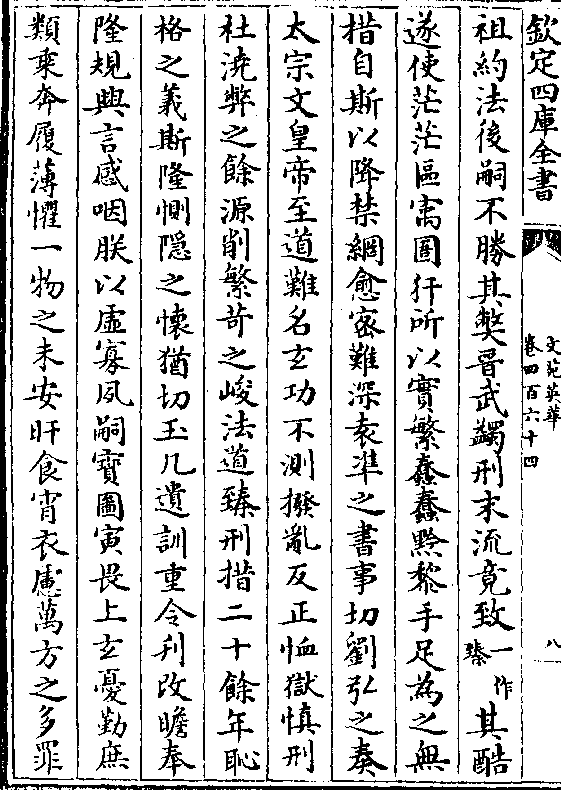 欽定四庫全書
文苑英華
卷四百六十四
八
祖約法後嗣不勝其弊晉武蠲刑末流竟致一作臻其酷
遂使茫茫區㝢圄犴所以實繁蠢蠢黔黎手足為之無
措自斯以降禁網愈宻難深袁準之書事切劉弘之奏
太宗文皇帝至道難名玄功不測撥亂反正恤獄慎刑
杜澆弊之餘源削繁苛之峻法道臻刑措二十餘年恥
格之義斯隆惻隱之懷猶切玉几遺訓重令刋改瞻奉
隆規興言感咽朕以虛寡夙嗣寶圖寅畏上玄憂勤庶
類乗奔履薄懼一物之未安旰食宵衣慮萬方之多罪